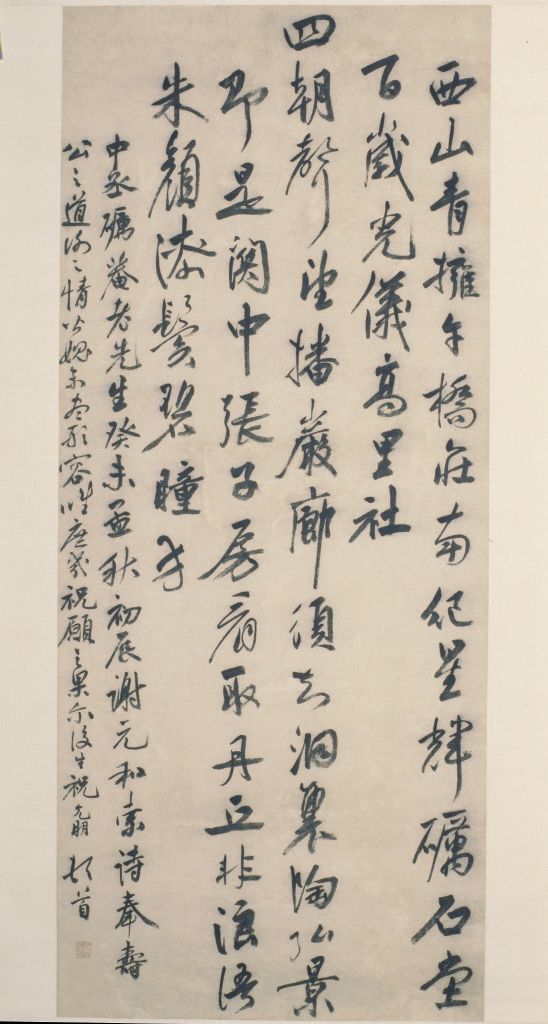 西山青擁午橋莊南紀星輝礪石堂
百歲光儀高里社
四朝聲望播巖廊須知洞裏陶弘景
即是関中張子房看取丹丘非浪語
朱顏漆鬢碧瞳方
中丞礪菴老先生癸未孟秋初辰謝元和索詩奉壽
公之道誼之情皆媿未盡形容惟庶幾祝願之果尔後生祝允明頓首